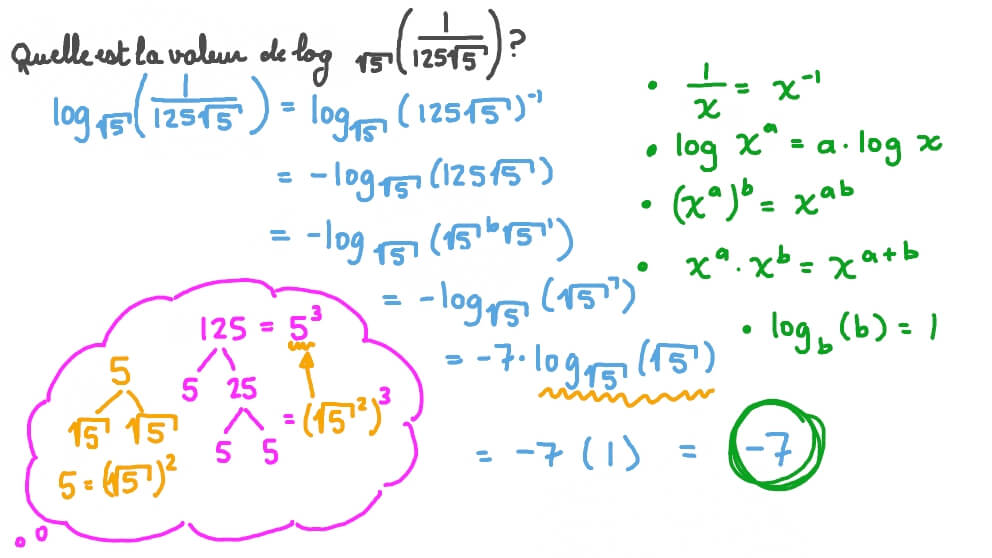 Quelle est la valeur de log_√5 (1/(125√5)) ?
log_√5 (1/(125√5)) = log_√5 (125√5)⁻¹
= -log_√5 (125√5)
= -log_√5 (√5⁶ √5¹)
= -log_√5 (√5⁷)
= -7 · log_√5 (√5)
= -7 (1) = -7
• 1/x = x⁻¹
• log xᵃ = a · log x
• (xᵃ)ᵇ = xᵃᵇ
• xᵃ · xᵇ = xᵃ⁺ᵇ
• log_b (b) = 1
125 = 5³
5 25
5 5
= (√5²)³
5
√5 √5
5 = (√5)²